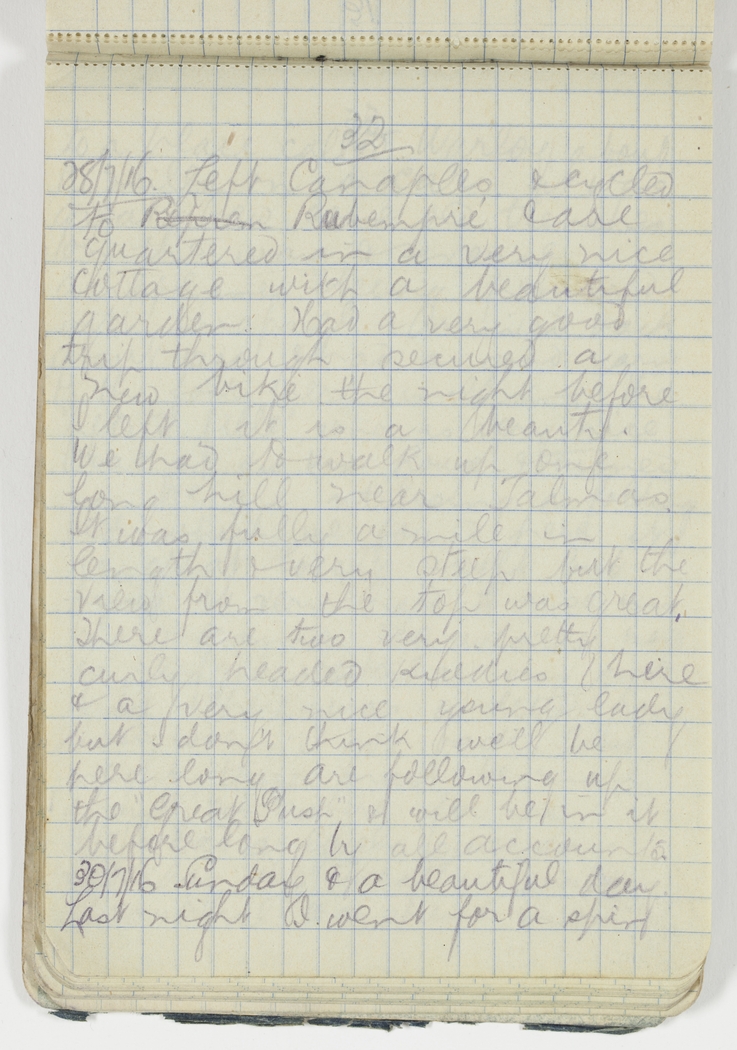 32
28/7/16. Left Canaples & cycled
to Rubempré & are
quartered in a very nice
cottage with a beautiful
garden. Had a very good
trip through secured a
new bike the night before
I left it is a beauty.
We had to walk up one
long hill near Talmas.
It was fully a mile in
length & very steep but the
view from the top was great.
There are two very pretty
curly headed kiddies here
& a very nice young lady
but I don't think we'll be
here long are following up
the "Great Push" & will be in it
before long by all accounts.
30/7/16 Sunday & a beautiful day.
Last night I went for a spin